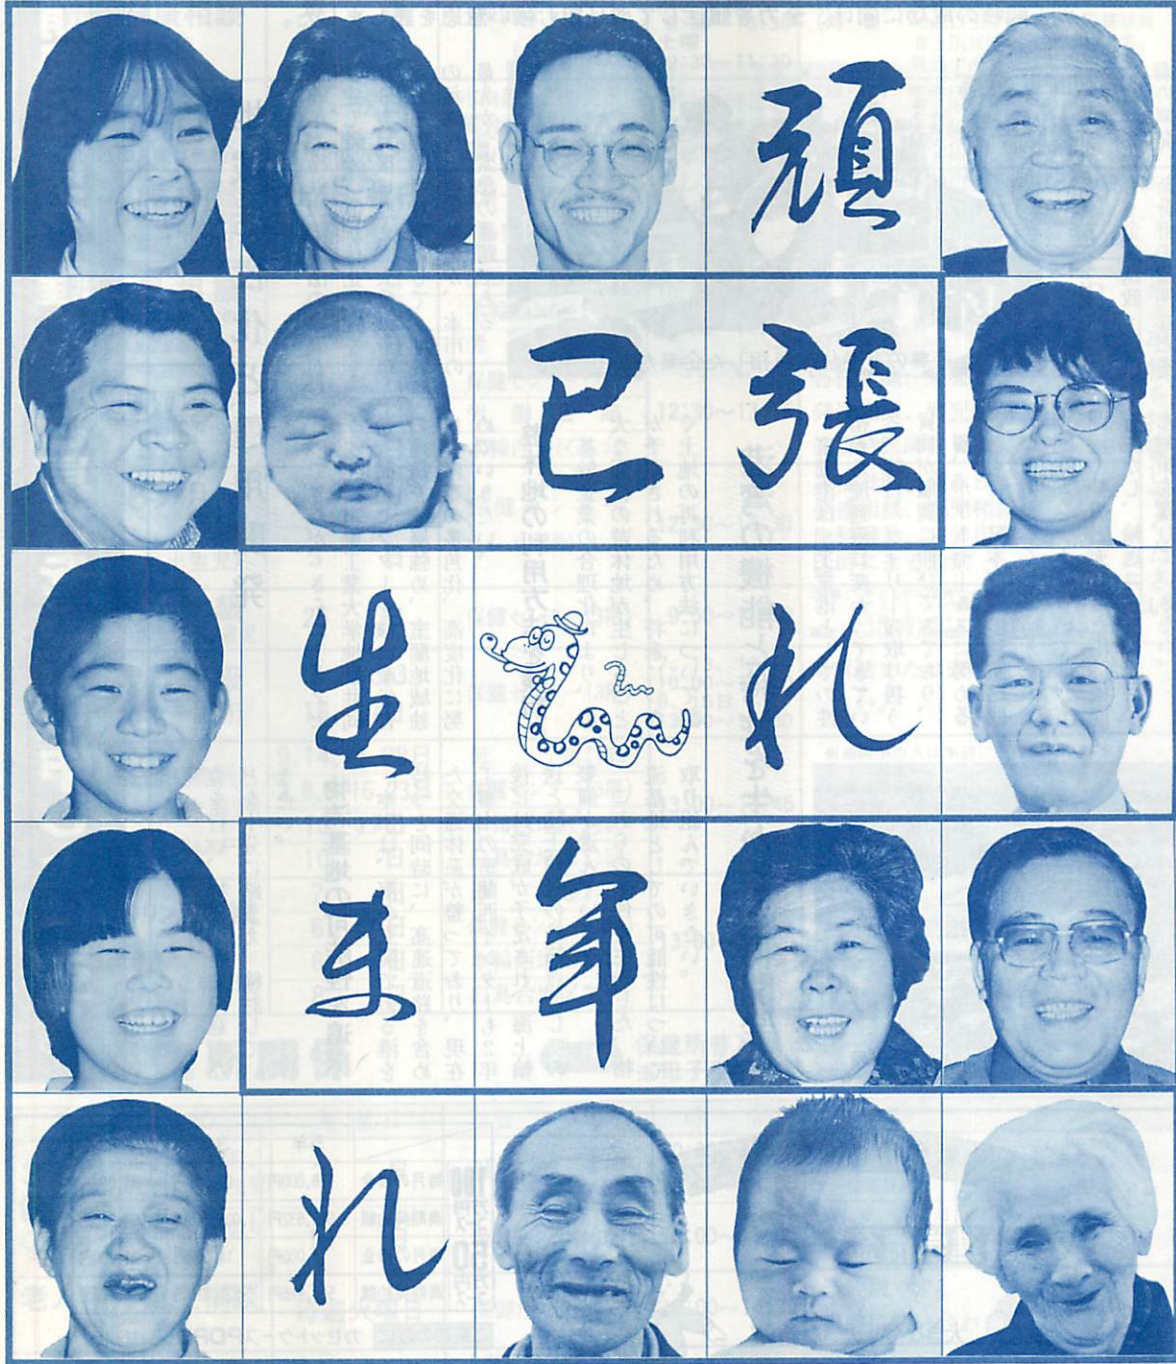 頑
張
れ
巳
年
生
ま
れ